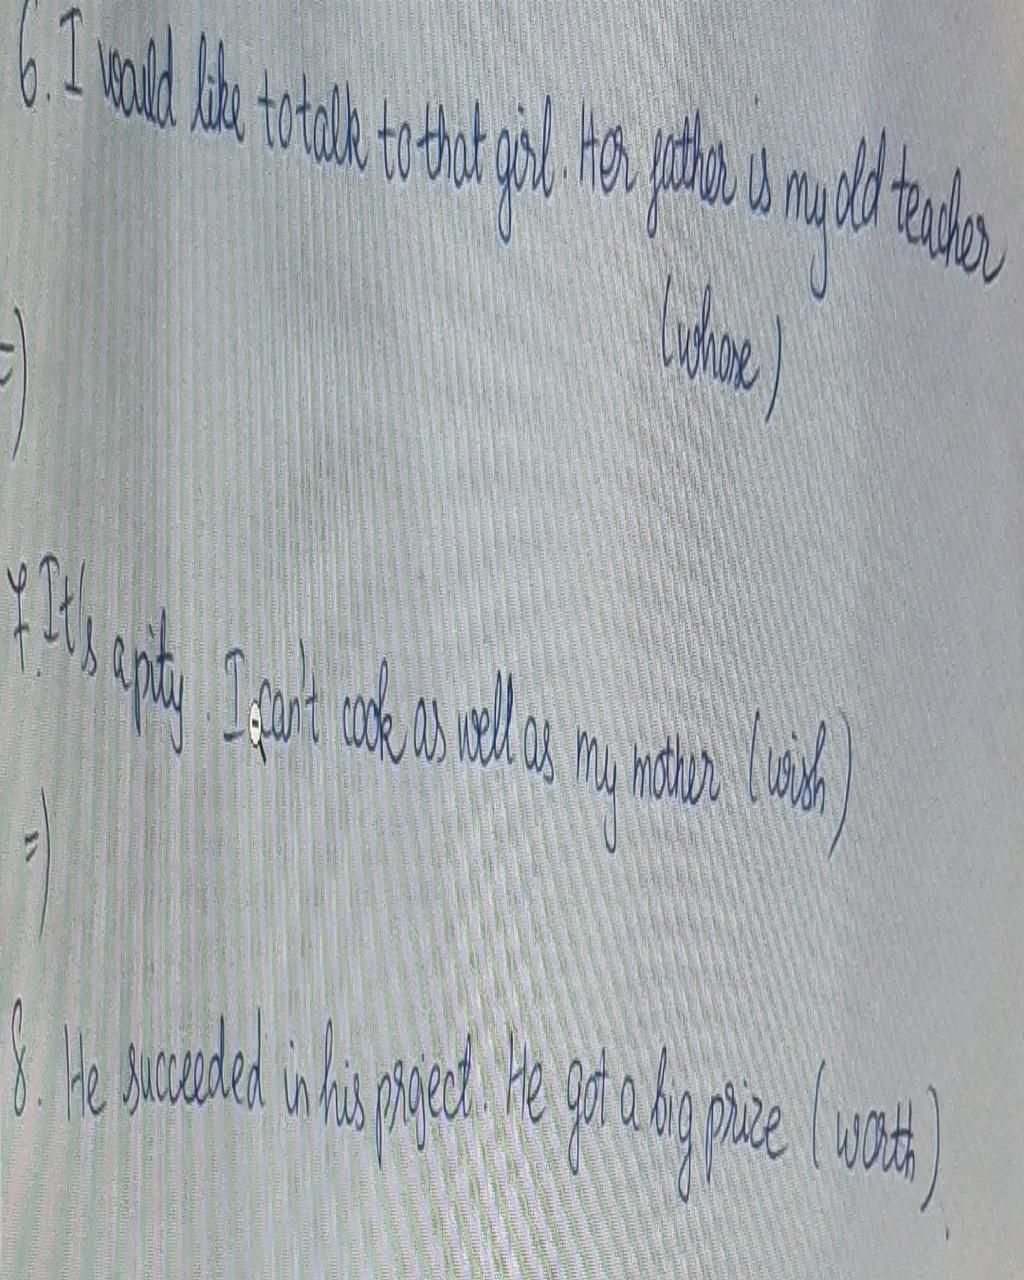 6. I would like to talk to that girl. Her father is my old teacher
(whose)
=)
7. It's a pity. I can't cook as well as my mother (wish)
=)
8. He succeeded in his project. He got a big prize (worth)